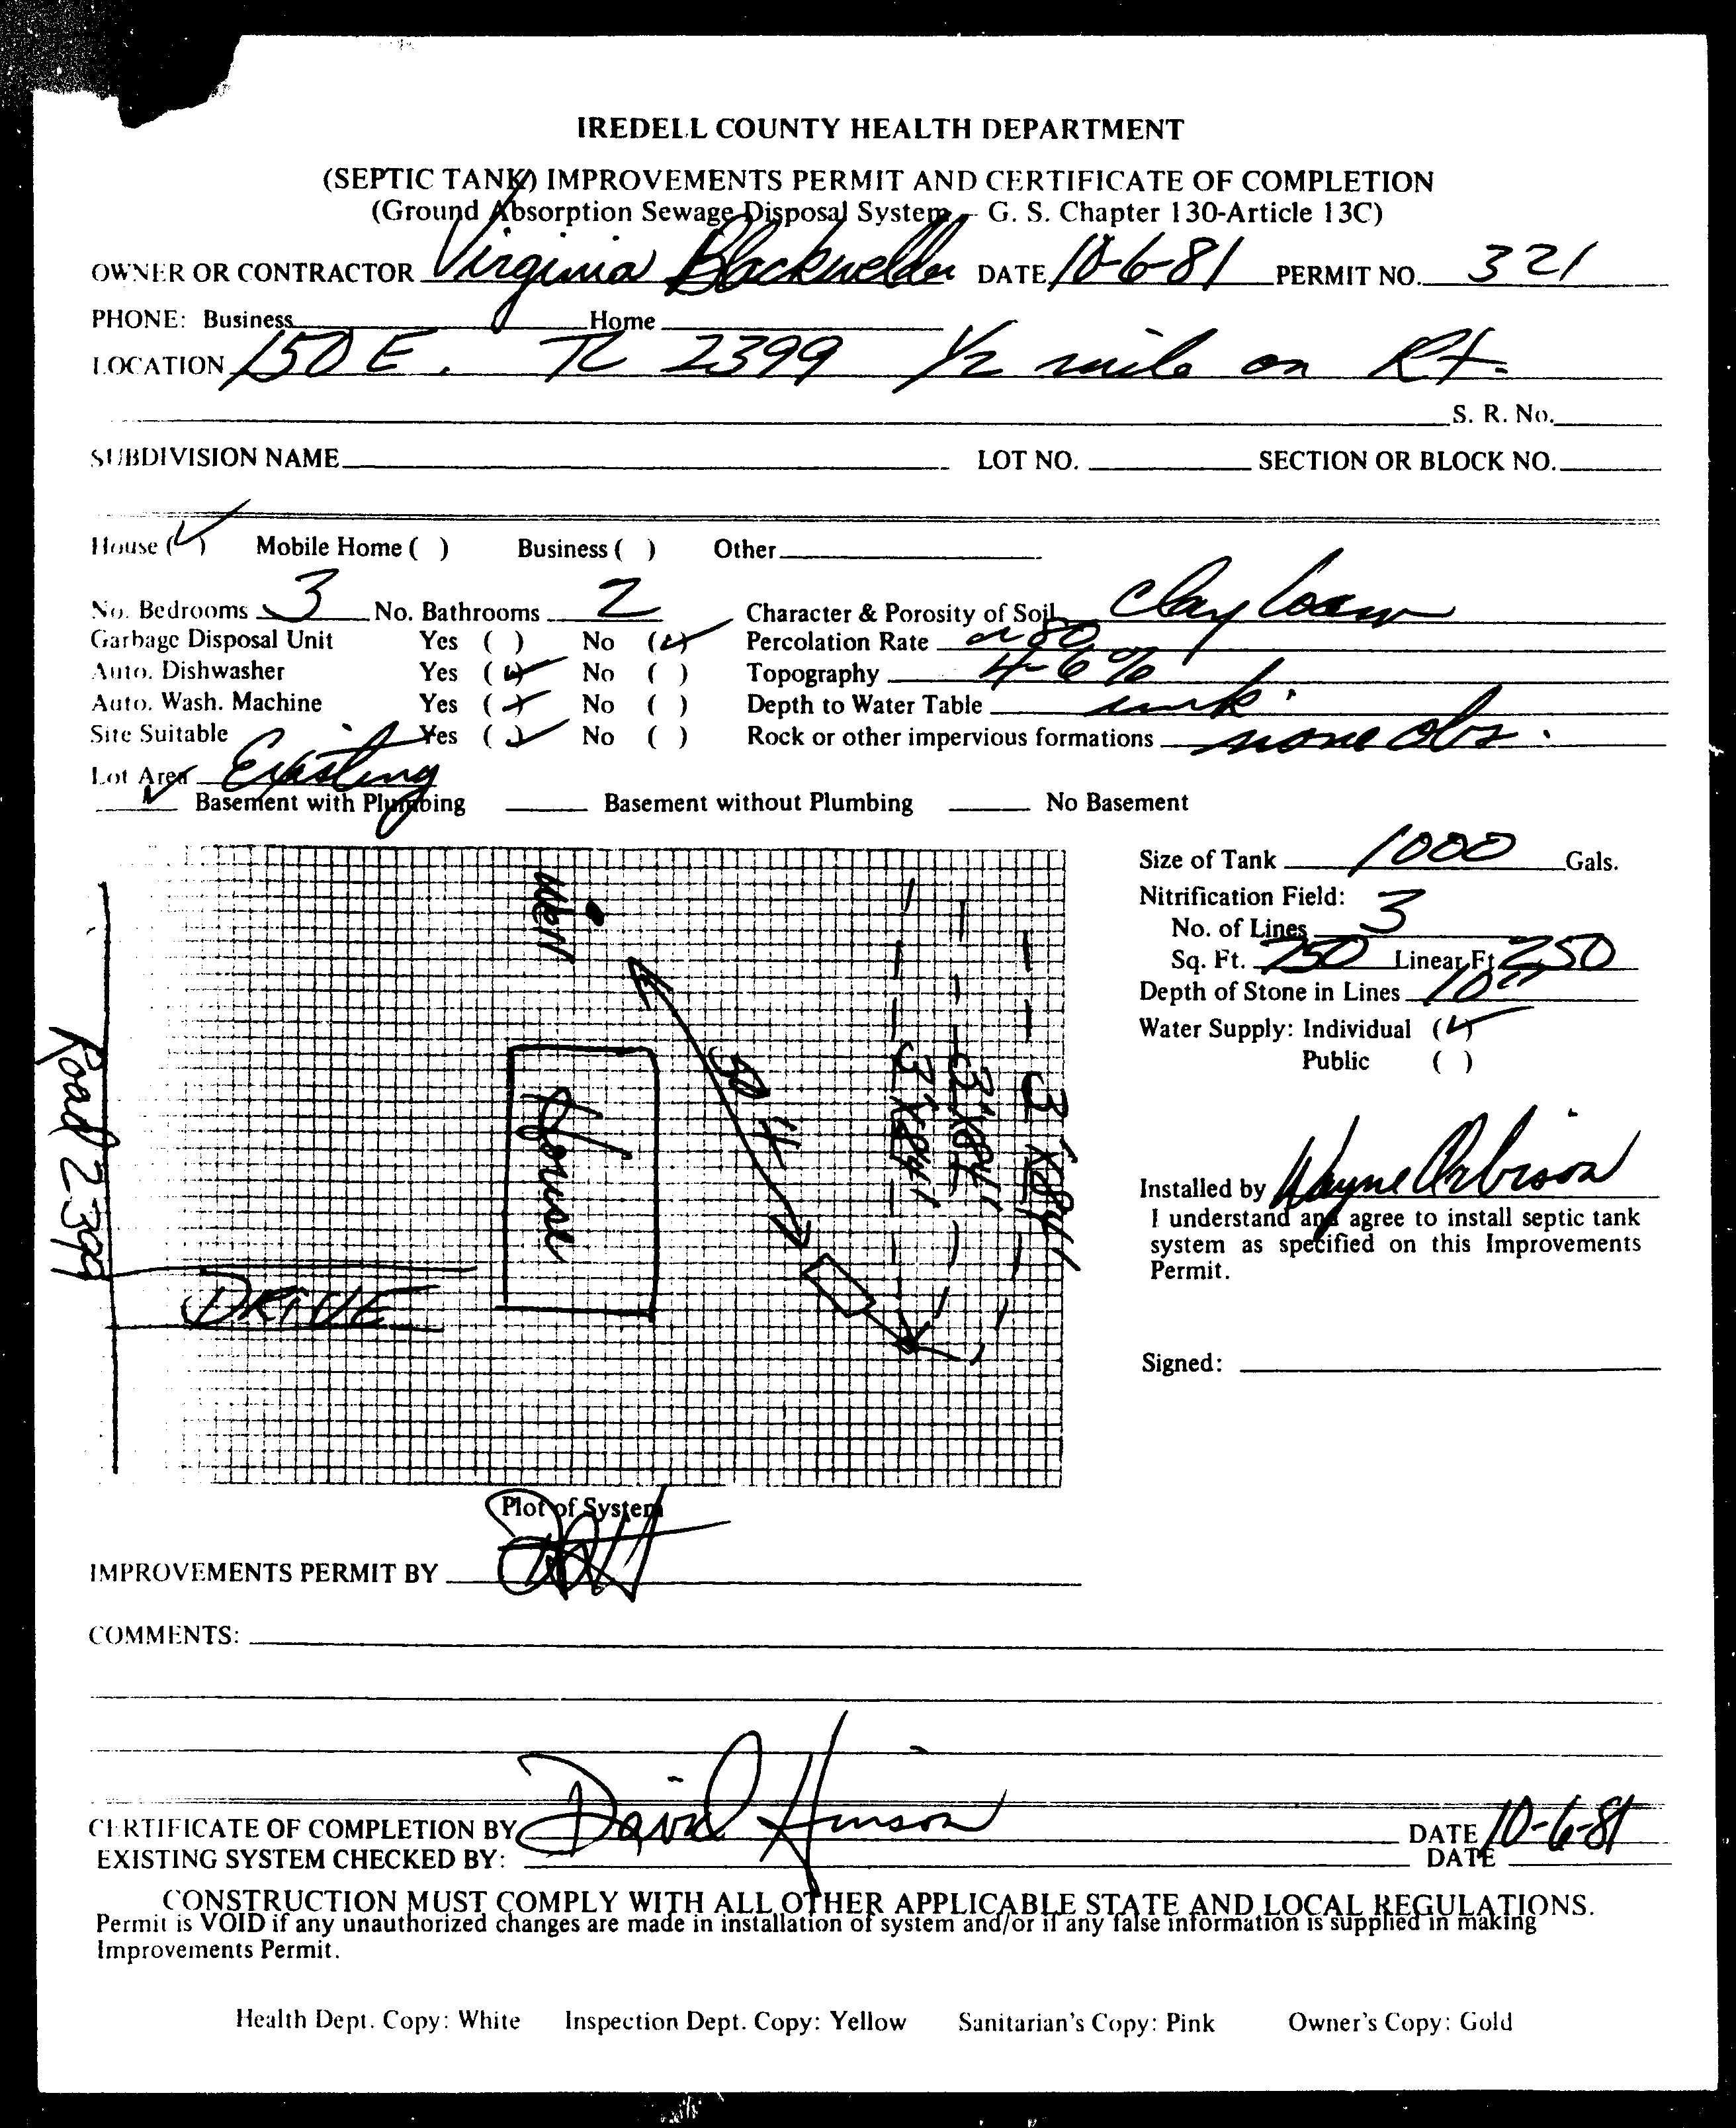 IREDELL COUNTY HEALTH DEPARTMENT
(SEPTIC TANK) IMPROVEMENTS PERMIT AND CERTIFICATE OF COMPLETION
(Ground Absorption Sewage Disposal System - G. S. Chapter 130-Article 13C)
OWNER OR CONTRACTOR Virginia Blackwelder DATE 10-6-81 PERMIT NO. 321
PHONE: Business Home
LOCATION 150 E. TL 2399 1/2 mile on Rt.
S. R. No.
SUBDIVISION NAME LOT NO. SECTION OR BLOCK NO.
House (✓) Mobile Home ( ) Business ( ) Other
No. Bedrooms 3 No. Bathrooms 2 Character & Porosity of Soil Clay loam
Garbage Disposal Unit Yes ( ) No (✓) Percolation Rate 80
Auto. Dishwasher Yes (✓) No ( ) Topography 4-6%
Auto. Wash. Machine Yes (✓) No ( ) Depth to Water Table unk.
Site Suitable Yes (✓) No ( ) Rock or other impervious formations none obs.
Lot Area Existing
✓ Basement with Plumbing Basement without Plumbing No Basement
Size of Tank 1000 Gals.
Nitrification Field:
No. of Lines 3
Sq. Ft. 750 Linear Ft 250
Depth of Stone in Lines 10"
Water Supply: Individual (✓)
Public ( )
Well
Road 2399
House
DRIVE
3'X84'
3'X84'
3'X84'
Installed by Wayne Orbison
I understand and agree to install septic tank
system as specified on this Improvements
Permit.
Signed:
Plot of System
IMPROVEMENTS PERMIT BY
COMMENTS:
CERTIFICATE OF COMPLETION BY David Hinson DATE 10-6-81
EXISTING SYSTEM CHECKED BY: DATE
CONSTRUCTION MUST COMPLY WITH ALL OTHER APPLICABLE STATE AND LOCAL REGULATIONS.
Permit is VOID if any unauthorized changes are made in installation of system and/or if any false information is supplied in making
Improvements Permit.
Health Dept. Copy: White Inspection Dept. Copy: Yellow Sanitarian's Copy: Pink Owner's Copy: Gold